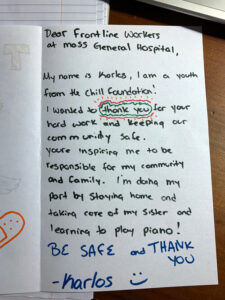 Dear Frontline Workers
at mass General Hospital,
My name is Karlos, I am a youth
from the Chill foundation!
I wanted to thank you for your
hard work and keeping our
community safe.
you're inspiring me to be
responsible for my community
and family. I'm doing my
part by staying home and
taking care of my sister and
learning to play piano!
BE SAFE and THANK
YOU
-Karlos